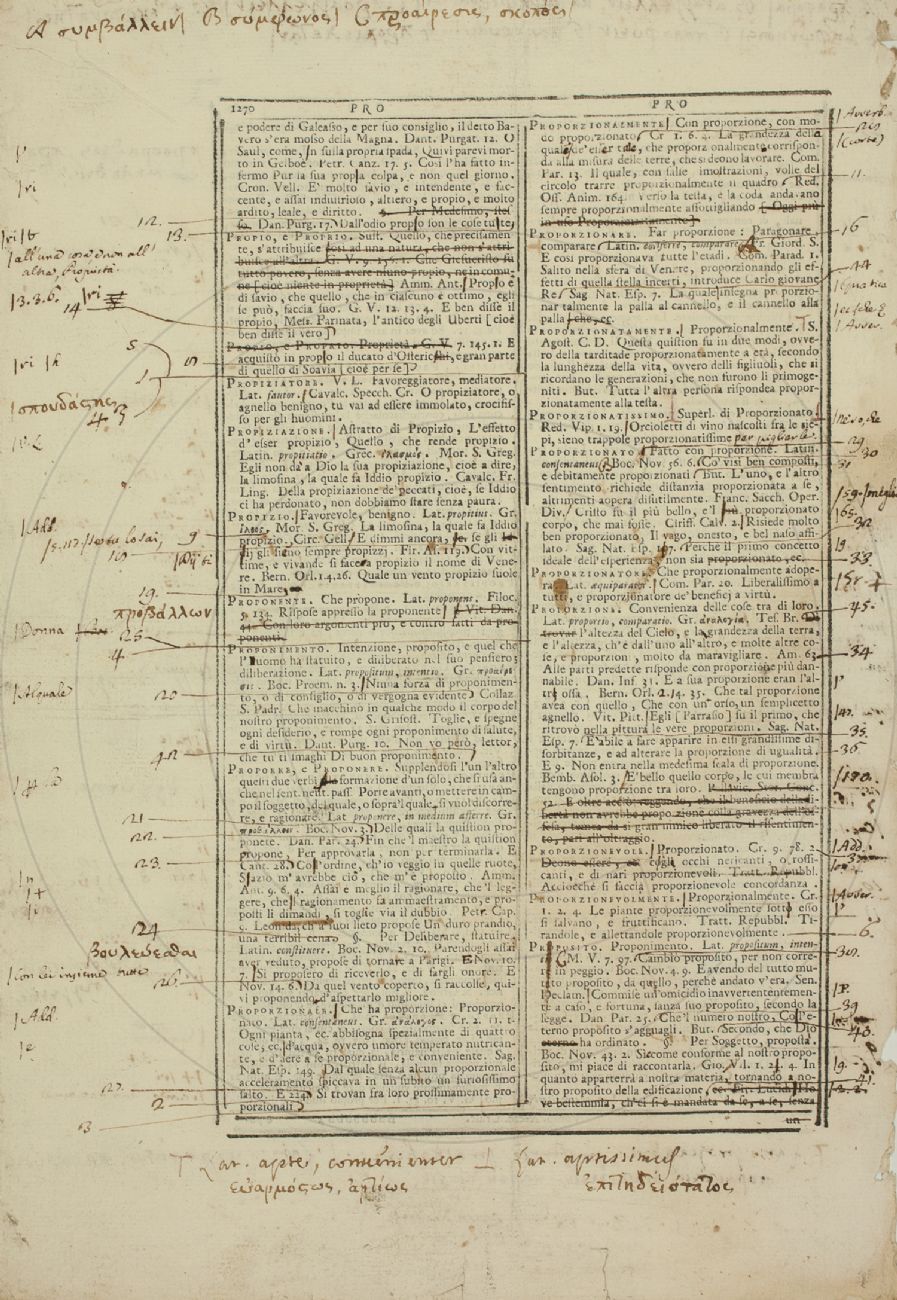 A συμβάλλειν| B σύμφωνος| C προαίρεσις, σκοπὸς|
1270 PRO PRO
e podere di Galeaſſo, e per ſuo conſiglio, il detto Ba-
vero s'era moſſo della Magna. Dant. Purgat. 12. O
Saul, come, in ſulla propria ſpada, Quivi parevi mor-
to in Gelboè. Petr. Canz. 17. 5. Così l'ha fatto in-
fermo Pur la ſua propia colpa, e non quel giorno.
Cron. Vell. E' molto ſavio, e intendente, e fac-
cente, e aſſai induſtrioſo, altiero, e propio, e molto
ardito, leale, e diritto. §. Per Medeſimo, ſteſ-
ſo. Dan. Purg. 17. Dall'odio propio ſon le coſe tute
PROPIO, e PROPRIO. Suſt. Quello, che preciſamen-
te, s'attribuiſce
tutto povero, ſenza avere niuno propio, ne in comu-
ne [cioè niente in proprietà] Amm. Ant. Propio è
di ſavio, che quello, che in ciaſcuno è ottimo, egli
ſe può, faccia ſuo. G. V. 12. 13. 4. E ben diſſe il
propio, Meſſ. Farinata, l'antico degli Uberti [cioè
ben diſſe il vero]
G. V. 7. 145. 1. E
acquiſtò in propio il ducato d'Oſtericchi, e gran parte
di quello di Soavia [cioè per ſe]
PROPIZIATORE. V. L. Favoreggiatore, mediatore.
Lat. fautor. Cavalc. Specch. Cr. O propiziatore, o
agnello benigno, tu vai ad eſſere immolato, crocifiſ-
ſo per gli huomini.
PROPIZIAZIONE. Aſtratto di Propizio, L'effetto
d'eſſer propizio, Quello, che rende propizio.
Latin. propitiatio. Grec. ἱλασμός. Mor. S. Greg.
Egli non dà a Dio la ſua propiziazione, cioè a dire,
la limoſina, la quale fa Iddio propizio. Cavalc. Fr.
Ling. Della propiziazione de' peccati, cioè, ſe Iddio
ci ha perdonato, non dobbiamo ſtare ſenza paura.
PROPIZIO. Favorevole, benigno. Lat. propitius. Gr.
ἵλαος. Mor. S. Greg. La limoſina, la quale fa Iddio
propizio. Circ. Gell. E dimmi ancora, ſe ſe gli
gli ſieno ſempre propizzj. Fir. Aſ. 119. Con vit-
time, e vivande ſi faceva propizio il nome di Vene-
re. Bern. Orl. 1. 4. 26. Quale un vento propizio ſuole
in Mare
PROPONENTE. Che propone. Lat. proponens. Filoc.
5. 124. Riſpoſe appreſſo la proponente Vit. Dan.
44. Con loro argomenti pro, e contro fatti da pro-
ponenti.
PROPONIMENTO. Intenzione, propoſito, e quel che
l'huomo ha ſtatuito, e diliberato nel ſuo penſiero;
diliberazione. Lat. propoſitum, intentio. Gr. προαίρε-
σις. Boc. Proem. n. 3. Niuna forza di proponimen-
to, o di conſiglio, o di vergogna evidente Collaz.
S. Padr. Che macchinò in qualche modo il corpo del
noſtro proponimento. S. Griſoſt. Toglie, e ſpegne
ogni deſiderio, e rompe ogni proponimento di ſalute,
e di virtù. Dant. Purg. 10. Non vo però, lettor,
che tu ti ſmaghi Di buon proponimento.
PROPORRE, e PROPONERE. Supplendoſi l'un l'altro
queſti due verbi alla formazione d'un ſolo, che ſi uſa an-
che nel ſent. neut. paſſ. Porre avanti, o mettere in cam-
po il ſoggetto, del quale, o ſopra'l quale, ſi vuol diſcorre-
re, e ragionare. Lat. proponere, in medium afferre. Gr.
προβάλλειν. Boc. Nov. 3. Delle quali la quiſtion pro-
ponete. Dan. Par. 24. Fin che 'l maeſtro la quiſtion
propone. Per approvarla, non per terminarla. E
Canz. 28. Coll'ordine, ch'io veggio in quelle ruote,
Sazio m'avrebbe ciò, che m'è propoſto. Amm.
Ant. 9. 6. 4. Aſſai è meglio il ragionare, che 'l leg-
gere, che il ragionamento fa ammaeſtramento, e pro-
poſti li dimandi, ſi toglie via il dubbio. Petr. Cap.
9. Leonida, ch'a' ſuoi lieto propoſe Un duro prandio,
una terribil cena. §. Per Deliberare, ſtatuire,
Latin. conſtituere. Boc. Nov. 2. 10. Parendogli aſſai
aver veduto, propoſe di tornare a Parigi. E Nov. 10.
7. Si propoſero di riceverlo, e di fargli onore. E
Nov. 14. 6. Da quel vento coperto, ſi raccolſe, qui-
vi proponendo d'aſpettarlo migliore.
PROPORZIONALE. Che ha proporzione: Proporzio-
nato. Lat. conſentaneus. Gr. ἀνάλογος. Cr. 2. 11. 1.
Ogni pianta, ec. abbiſogna ſpezialmente di quattro
coſe, ec. d'acqua, ovvero umore temperato nutrican-
te, e d'aere a ſe proporzionale, e conveniente. Sag.
Nat. Eſp. 149. Dal quale ſenza alcun proporzionale
acceleramento ſpiccava in un ſubito un furioſiſſimo
ſalto. E 224. Si trovan fra loro proſſimamente pro-
porzionali
PROPORZIONALMENTE. Con proporzione, con mo-
do proporzionato. Cr. 1. 6. 4. La grandezza della
quale de' eſſer tale, che proporzionalmente corriſpon-
da alla miſura delle terre, che ſi deono lavorare. Com.
Par. 13. Il quale, con falſe dimoſtrazioni, volle del
circolo trarre proporzionalmente il quadro. Red.
Oſſ. Anim. 164. Verſo la teſta, e la coda andavano
ſempre proporzionalmente aſſottigliando [Oggi più
in uſo Proporzionatamente]
PROPORZIONARE. Far proporzione: Paragonare,
comparare. Latin. conferre, comparare. Fr. Giord. S.
E così proporzionava tutte l'etadi. Com. Parad. 1.
Salito nella sfera di Venere, proporzionando gli ef-
fetti di quella ſtella incerti, introduce Carlo giovane
Re. Sag. Nat. Eſp. 7. La quale inſegna proporzio-
nar talmente la palla al cannello, e il cannello alla
palla che, ec.
PROPORZIONATAMENTE. Proporzionalmente. S.
Agoſt. C. D. Queſta quiſtion fu in due modi, ovve-
ro della tarditade proporzionatamente a età, ſecondo
la lunghezza della vita, ovvero delli figliuoli, che ſi
ricordano le generazioni, che non furono li primoge-
niti. But. Tutta l'altra perſona riſpondea propor-
zionatamente alla teſta.
PROPORZIONATISSIMO. Superl. di Proporzionato
Red. Vip. 1. 19. Orcioletti di vino naſcoſti fra le ſie-
pi, ſieno trappole proporzionatiſſime per pigliarle
PROPORZIONATO. Fatto con proporzione. Latin.
conſentaneus. Boc. Nov. 56. 6. Co' viſi ben compoſti,
e debitamente proporzionati. But. L'uno, e l'altro
ſentimento richiede diſtanzia proporzionata a ſe,
altrimenti aopera diſutilmente. Franc. Sacch. Oper.
Div. Criſto fu il più bello, e'l più proporzionato
corpo, che mai foſſe. Ciriff. Calv. 2. Riſiede molto
ben proporzionato, Il vago, oneſto, e bel naſo affi-
lato. Sag. Nat. Eſp. 167. Perchè il primo concetto
ideale dell'eſperienza non ſia proporzionato, ec.
PROPORZIONATORE. Che proporzionalmente adope-
ra. Lat. æquiparator. Com. Par. 20. Liberaliſſimo a
tutti, e proporzionatore de' beneficj a virtù.
PROPORZIONE. Convenienza delle coſe tra di loro.
Lat. proportio, comparatio. Gr. ἀναλογία. Teſ. Br. Di
trovar l'altezza del Cielo, e la grandezza della terra,
e l'altezza, ch'è dall'uno all'altro, e molte altre co-
ſe, e proporzioni, molto da maravigliare. Am. 63.
Alle parti predette riſponde con proporzione più dan-
nabile. Dan. Inf. 31. E a ſua proporzione eran l'al-
tr' oſſa. Bern. Orl. 2. 14. 35. Che tal proporzione
avea con quello, Che con un'orſo, un ſemplicetto
agnello. Vit. Pitt. Egli [Parraſio] fu il primo, che
ritrovò nella pittura le vere proporzioni. Sag. Nat.
Eſp. 7. E' abile a fare apparire in eſſi grandiſſime di-
ſorbitanze, e ad alterare la proporzione di ugualità.
E 9. Non entra nella medeſima ſcala di proporzione.
Bemb. Aſol. 3. E' bello quello corpo, le cui membra
tengono proporzione tra loro. Pallavic. Stor. Conc.
52. E oltre acciò veggendo, che il beneficio della li-
bertà non avrebbe proporzione colla gravezza dell'of-
feſa,
PROPORZIONEVOLE. Proporzionato. Gr. 9. 78. 2.
Deono eſſere, ec. cogli occhi nericanti, o roſſi-
canti, e di nari proporzionevoli. Tratt. Repubbl.
Acciocchè ſi faccia proporzionevole concordanza.
PROPORZIONEVOLMENTE. Proporzionalmente. Cr.
1. 2. 4. Le piante proporzionevolmente ſotto eſſo
ſi ſalvano, e fruttificano. Tratt. Repubbl. Ti-
randole, e allettandole proporzionevolmente.
PROPOSITO. Proponimento. Lat. propoſitum, inten-
M. V. 7. 97. Cambio propoſito, per non corre-
re in peggio. Boc. Nov. 4. 9. E avendo del tutto mu-
tato propoſito, da quello, perchè andato v'era. Sen.
Declam. Commiſe un'omicidio inavvertentemen-
te a caſo, e fortuna, ſanza ſuo propoſito, ſecondo la
legge. Dan. Par. 25. Che'l numero noſtro, Coll'e-
terno propoſito s'agguagli. But. Secondo, che Dio
eterno ha ordinato. §. Per Soggetto, propoſta.
Boc. Nov. 43. 2. Siccome conforme al noſtro propo-
ſito, mi piace di raccontarla. Gio. V. l. 1. 21. 4. In
quanto apparterrà a noſtra materia, tornando a no-
ſtro propoſito della edificazione, ec.
ve beſtemmia, ch'ei ſi è mandata da ſe, a ſe, ſenza
un
12.
13.
|all'una cosa e non all'
altra proprietà.
|3.8.6.
14
5
|σπουδάςης
4
|V.L
|Add.
9
10
29.
προβάλλων
|Donna
25
4.
|Alquale
20
42
21
22.
23
24
βουλεύεσθαι
|con lei insieme tutte
26.
|Add.
27.
2
3
|Avverb.
11.
16
44
|Avver.
29
30
31
32
33
45.
34
35.
36
|Add.
|Avver.
6.
30.
39
40.
41.
⊤ Lat. apte, convenienter ⊥ Lat. aptissimus
εὐαρμόστως, ἀξίως ἐπιτηδειότατος